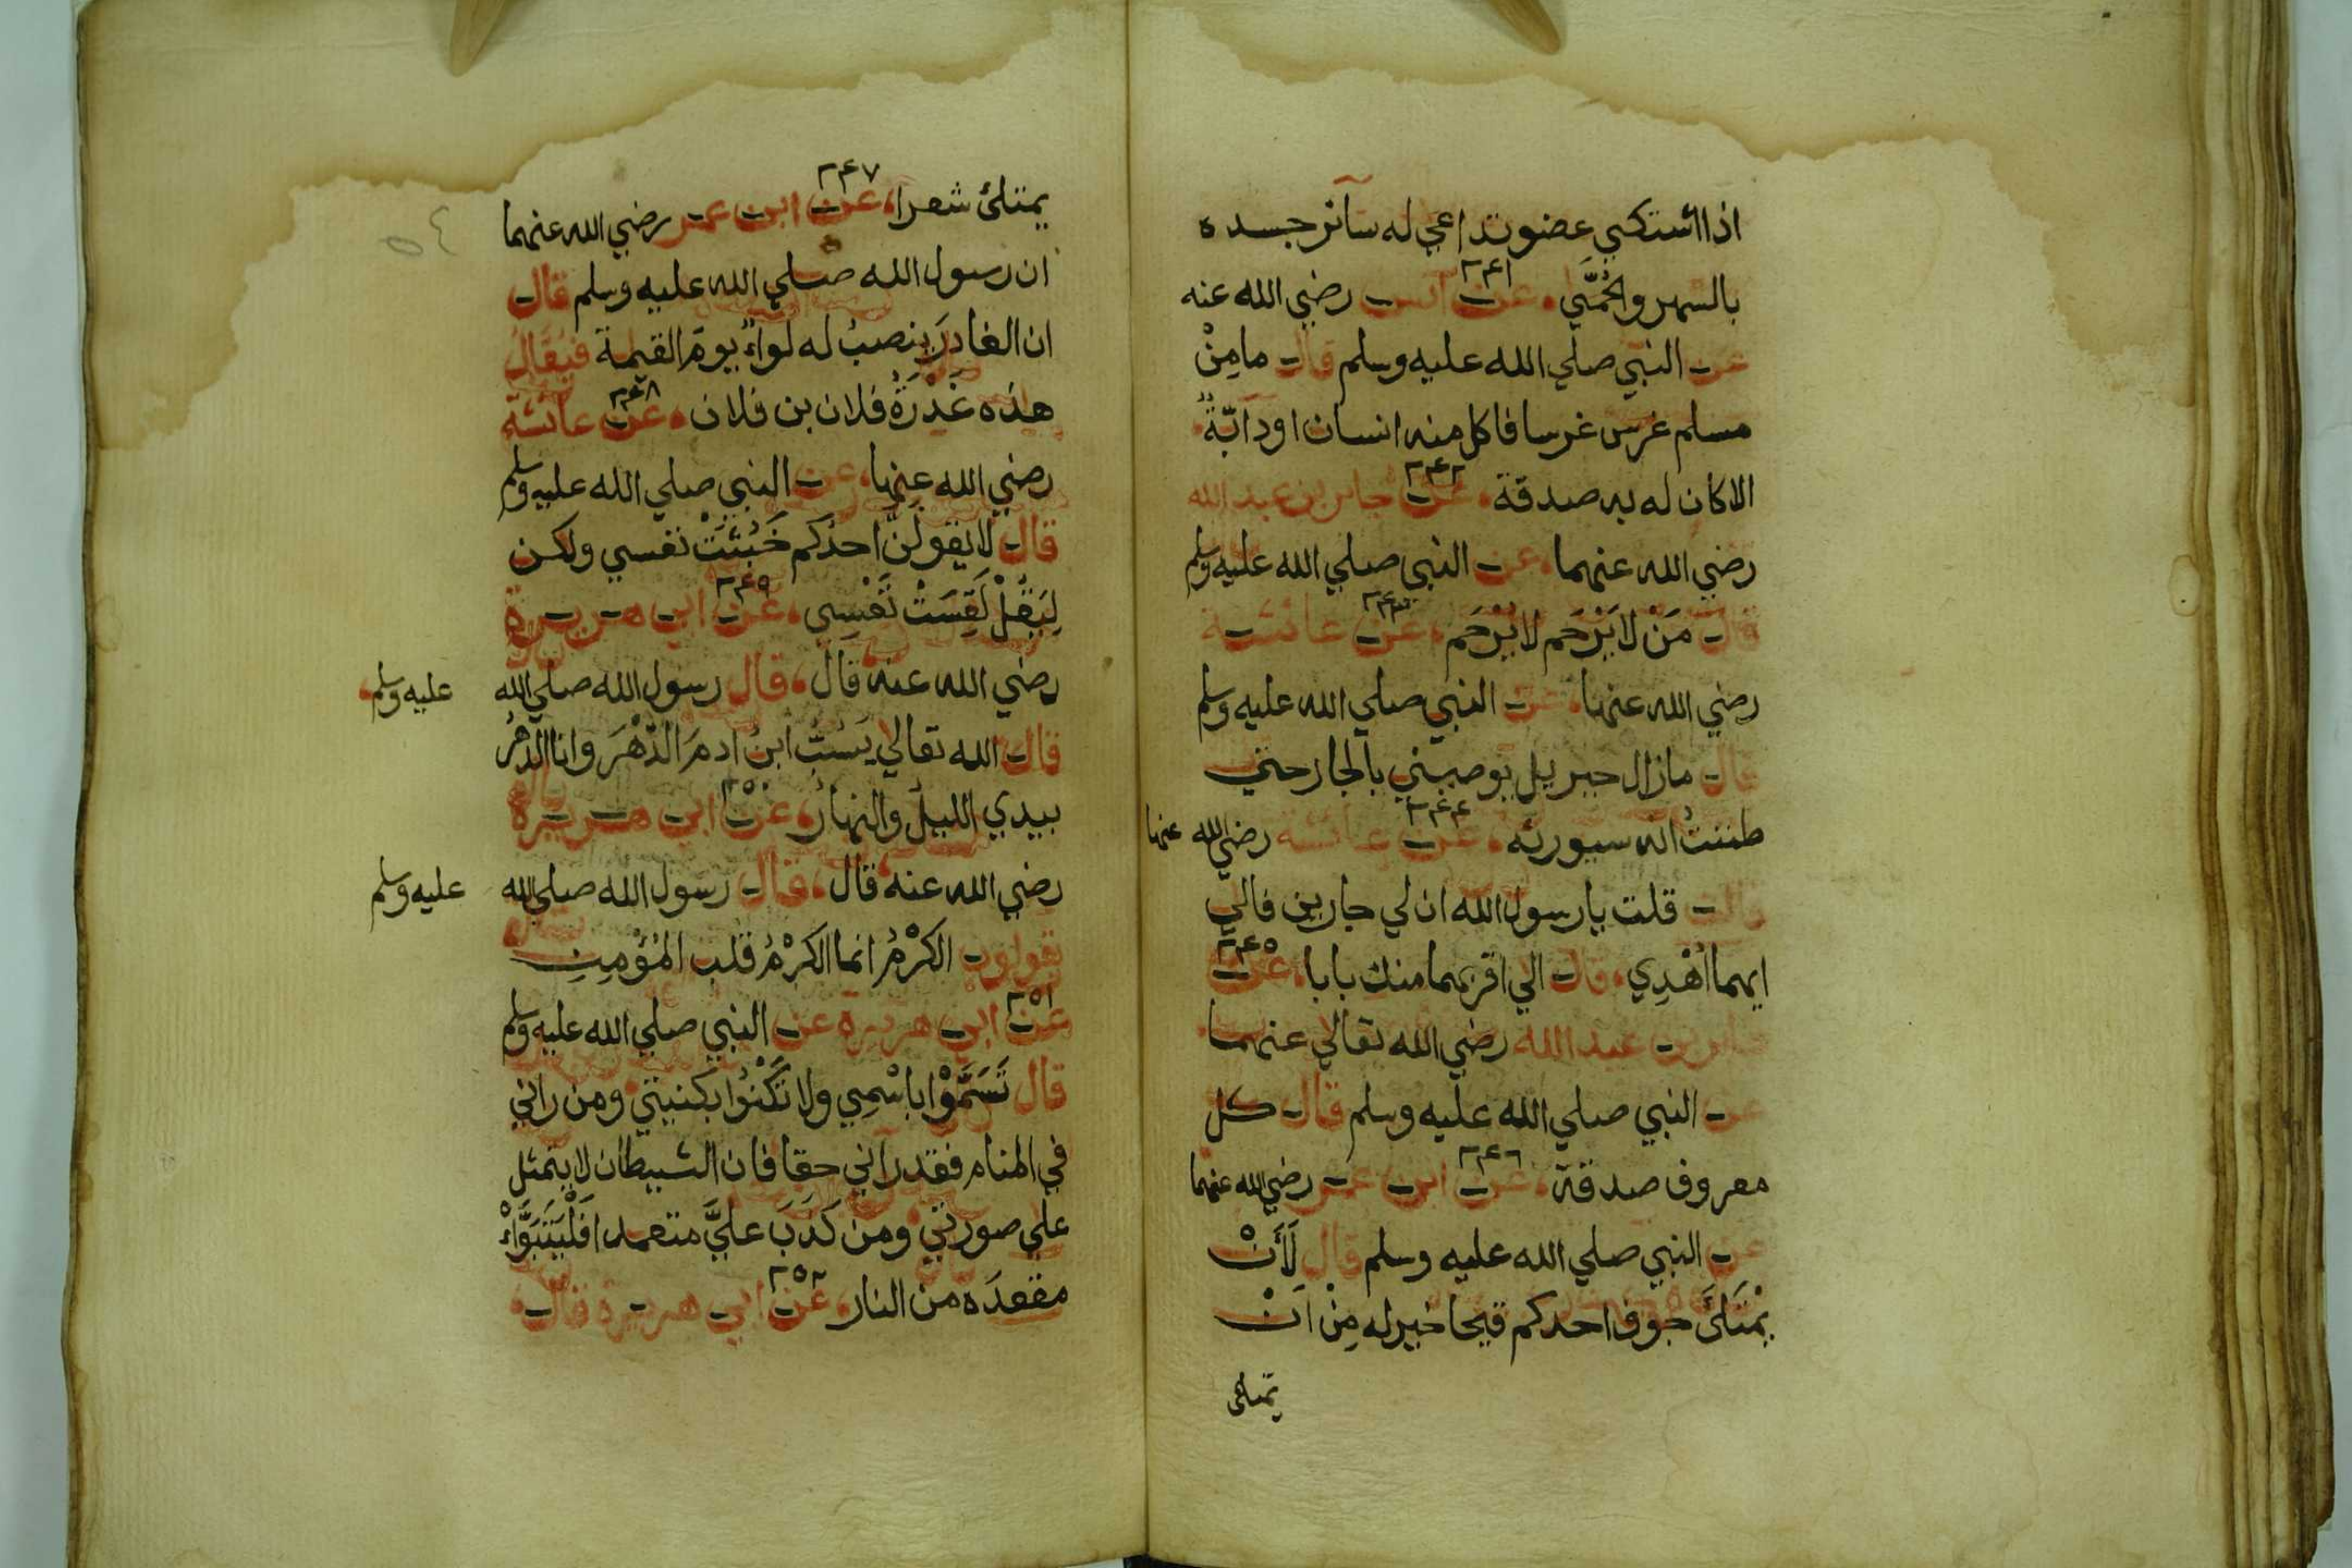 اذا اشتكي عضو تداعي له سائر جسده
بالسهر والحُمَّي ، عن ٢٤١ انس رضي الله عنه
عن النبي صلي الله عليه وسلم قال ما مِنْ
مسلم غرس غرسا فاكل منه انسان او دابّةٌ
الا كان له به صدقة ، عن ٢٤٢ جابر بن عبد الله
رضي الله عنهما ، عن النبي صلي الله عليه وسلم
قال مَنْ لا يَرْحَم لا يُرْحَم ، عن ٢٤٣ عائشة
رضي الله عنها ، عن النبي صلي الله عليه وسلم
قال ما زال جبريل يوصيني بالجار حتي
ظننتُ انه سيورثه ، عن ٢٤٤ عائشة رضي الله عنها
قالت قلت يا رسول الله ان لي جارين فالي
ايهما اُهْدِي ، قال الي اقربهما منك بابا ، عن ٢٤٥
جابر بن عبد الله رضي الله تعالي عنهما
عن النبي صلي الله عليه وسلم قال كل
معروف صدقة ، عن ٢٤٦ ابن عمر رضي الله عنهما
عن النبي صلي الله عليه وسلم قال لَأَنْ
يمْتَلَئَ جوف احدكم قيحا خير له مِنْ اَنْ
يمتلئ
٥٤
يمتلئ شعرا ، عن ٢٤٧ ابن عمر رضي الله عنهما
ان رسول الله صلي الله عليه وسلم قال
ان الغادرَ ينصبُ له لواءٌ يومَ القيمة فيُقَالُ
هذه غَدْرَةُ فلان بن فلان ، عن ٢٤٨ عائشة
رضي الله عنها ، عن النبي صلي الله عليه وسلم
قال لا يقولَنَّ احدُكم خَبُثَتْ نفسي ولكن
لِيَقُلْ لَقِسَتْ نَفْسِي ، عن ٢٤٩ ابي هريرة
رضي الله عنه قال ، قال رسول الله صلي الله عليه وسلم
قال الله تعالي يَسُبُّ ابنُ ادمَ الدّهْرَ وانا الدهْرُ
بيدي الليلُ والنهارُ ، عن ٢٥٠ ابي هريرة
رضي الله عنه قال ، قال رسول الله صلي الله عليه وسلم
يقولون الكرْمُ انما الكرْمُ قلب المُؤمِنِ
عن ٢٥١ ابي هريرة عن النبي صلي الله عليه وسلم
قال تَسَمَّوْا باسْمِي ولا تَكْنُوا بكنيتي ومن راني
في المنام فقد راني حقا فان الشيطان لا يتمثل
علي صورتي ومن كذَبَ عليَّ متعمدا فَلْيَتَبَوَّاءْ
مقعدَه من النار ، عن ٢٥٢ ابي هريرة قال